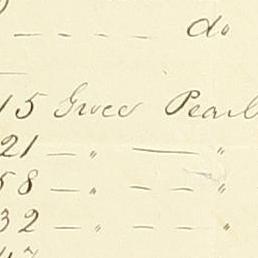 — — — — — do
15 Groce Pearl
21 — " — "
58 — " — — "
32 — " — — "